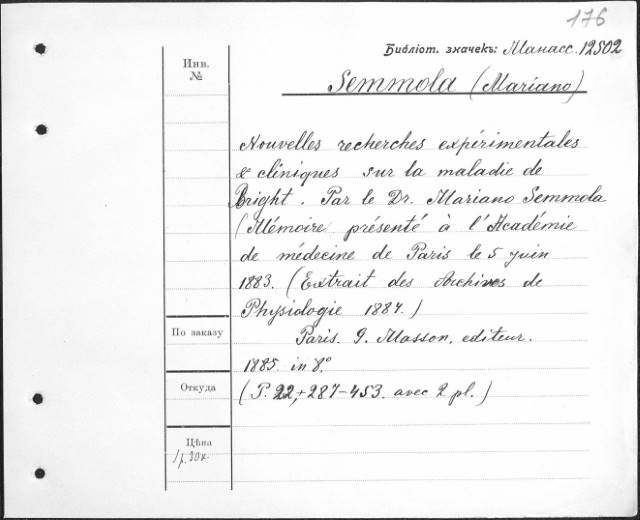 176
Библіот. значекъ: Манасс. 12502
Инв.
№
Semmola (Mariano)
Nouvelles recherches expérimentales
& cliniques sur la maladie de
Bright. Par le Dr. Mariano Semmola
(Mémoire présenté à l'Académie
de médecine de Paris le 5 juin
1883. (Extrait des Archives de
Physiologie 1884.)
По заказу
Paris. G. Masson, editeur.
1885 in 8°
Откуда
(P. 22, + 287-453. avec 2 pl.)
Цѣна
1 р. 30 к